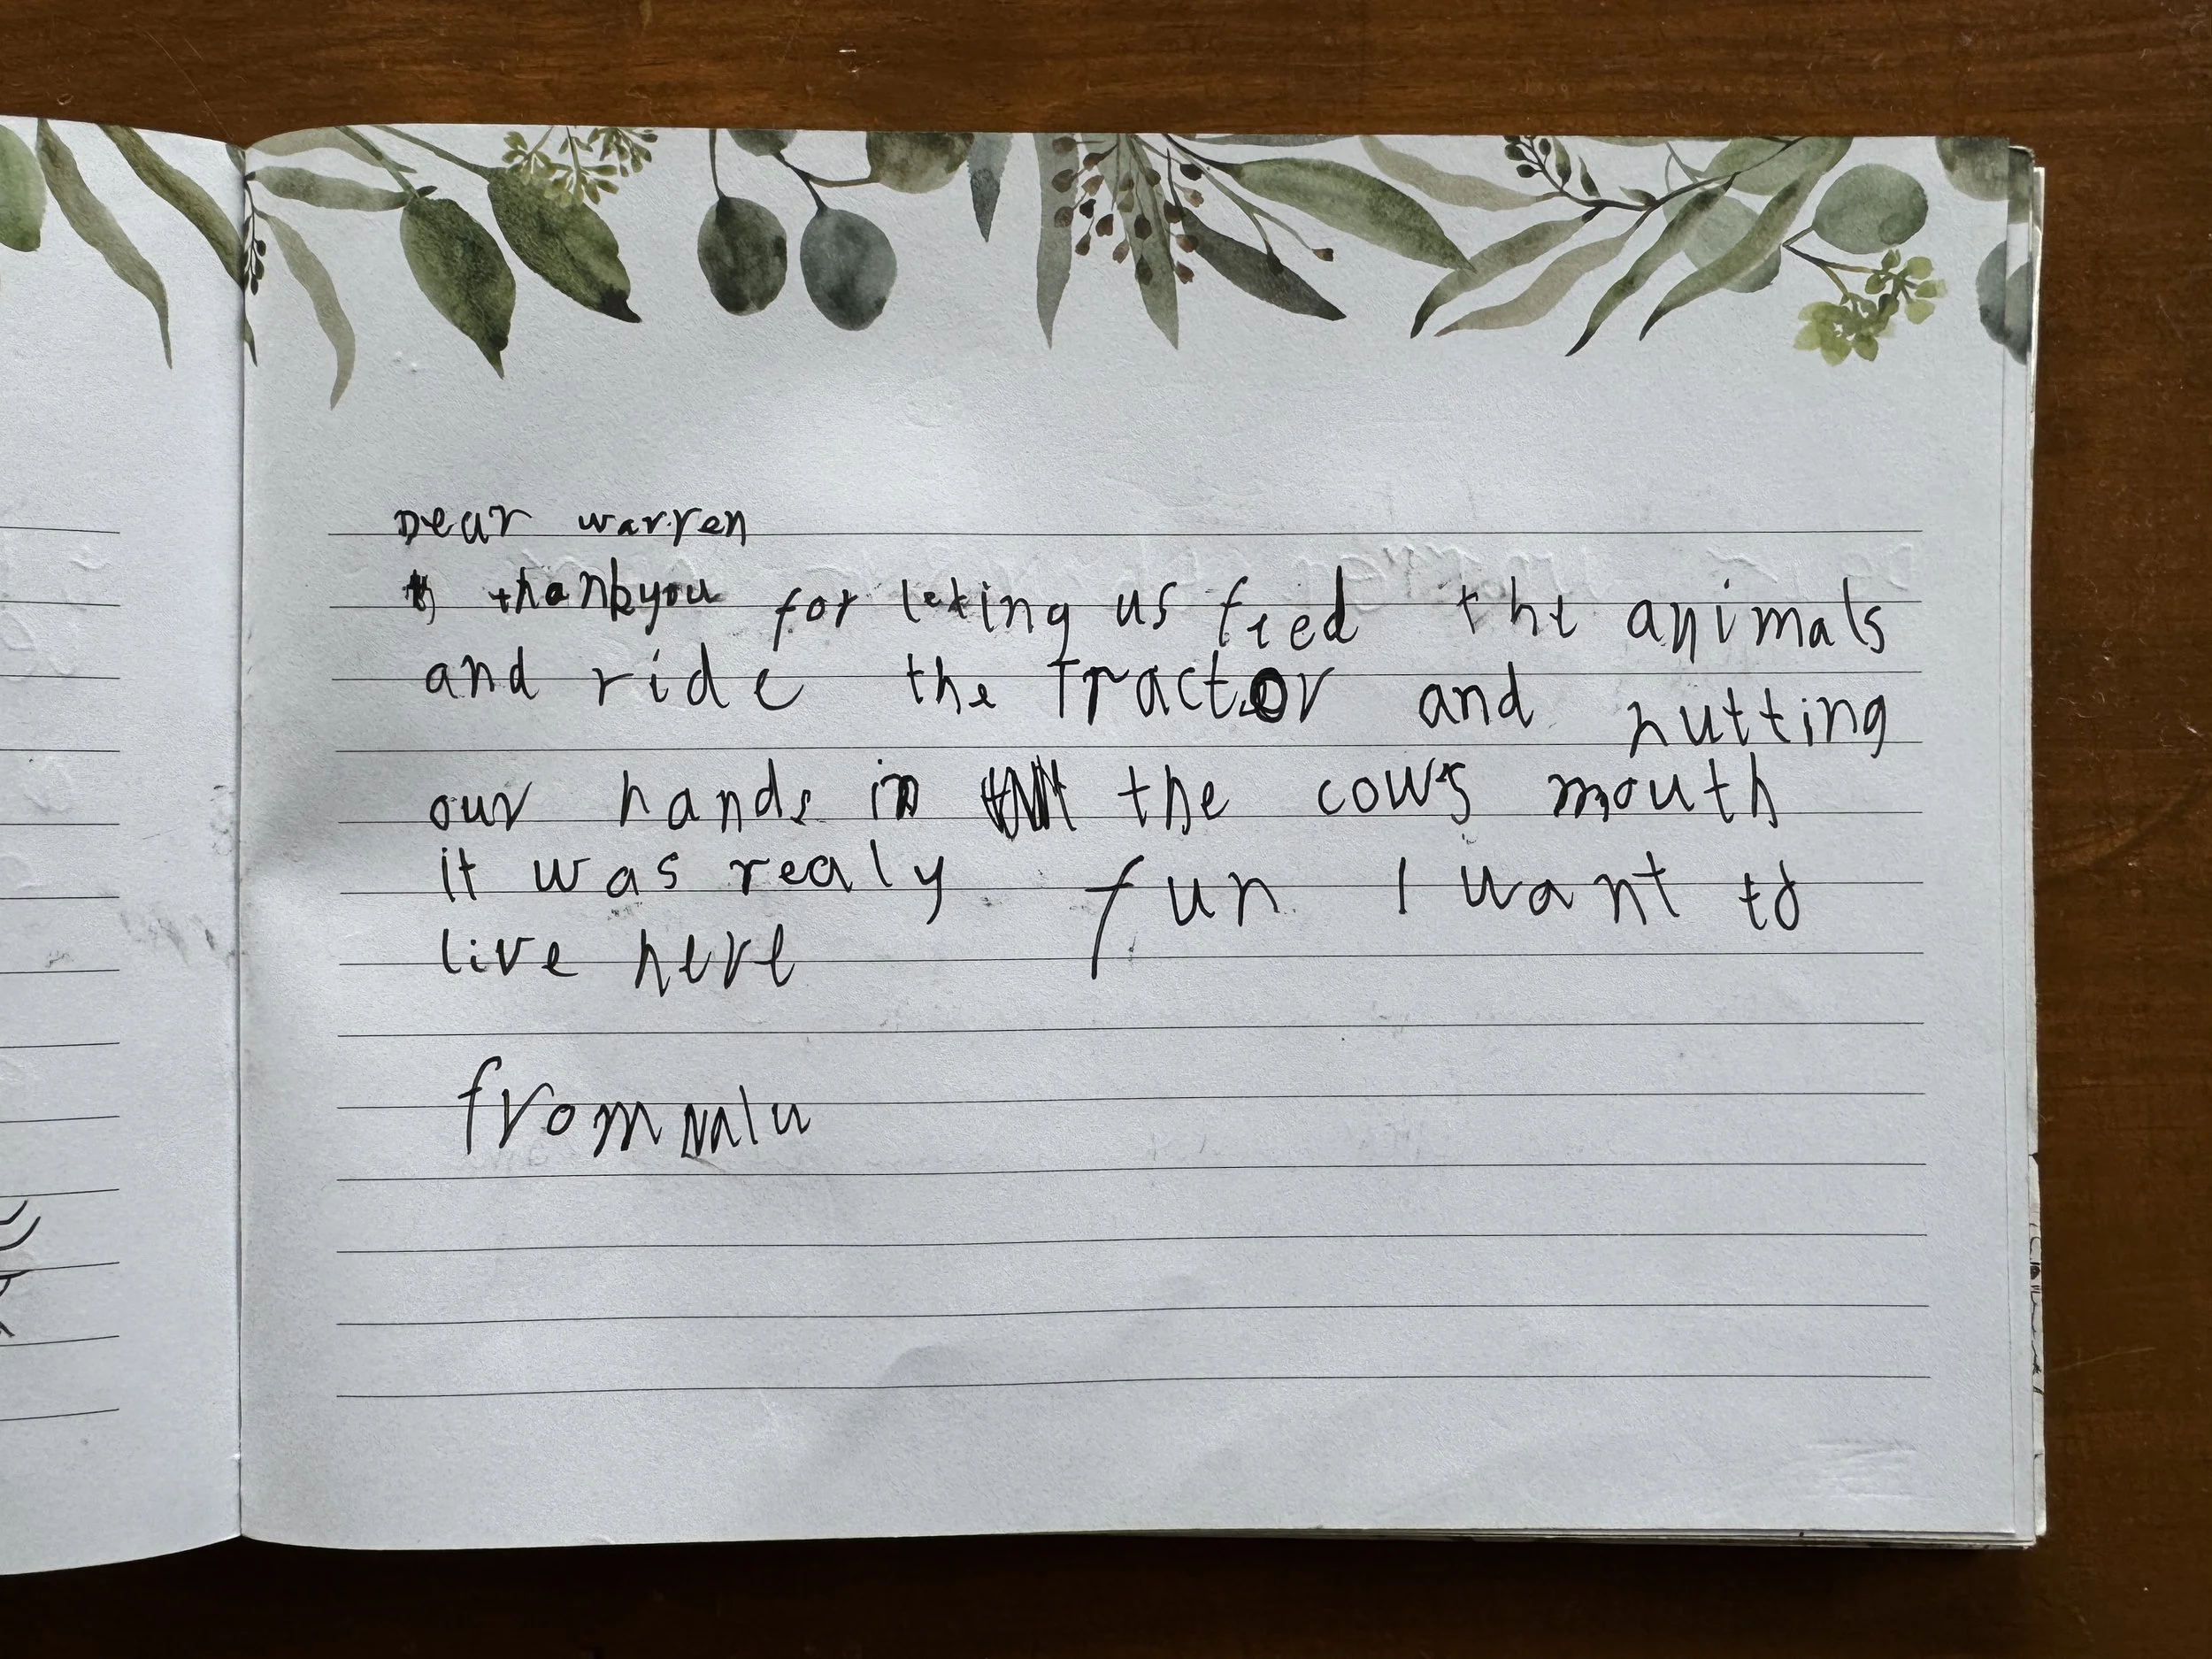 Dear warren
thankyou for leting us feed the animals
and ride the Tractor and nutting
our hands in the cows mouth
it was realy fun I want to
live here
from malu